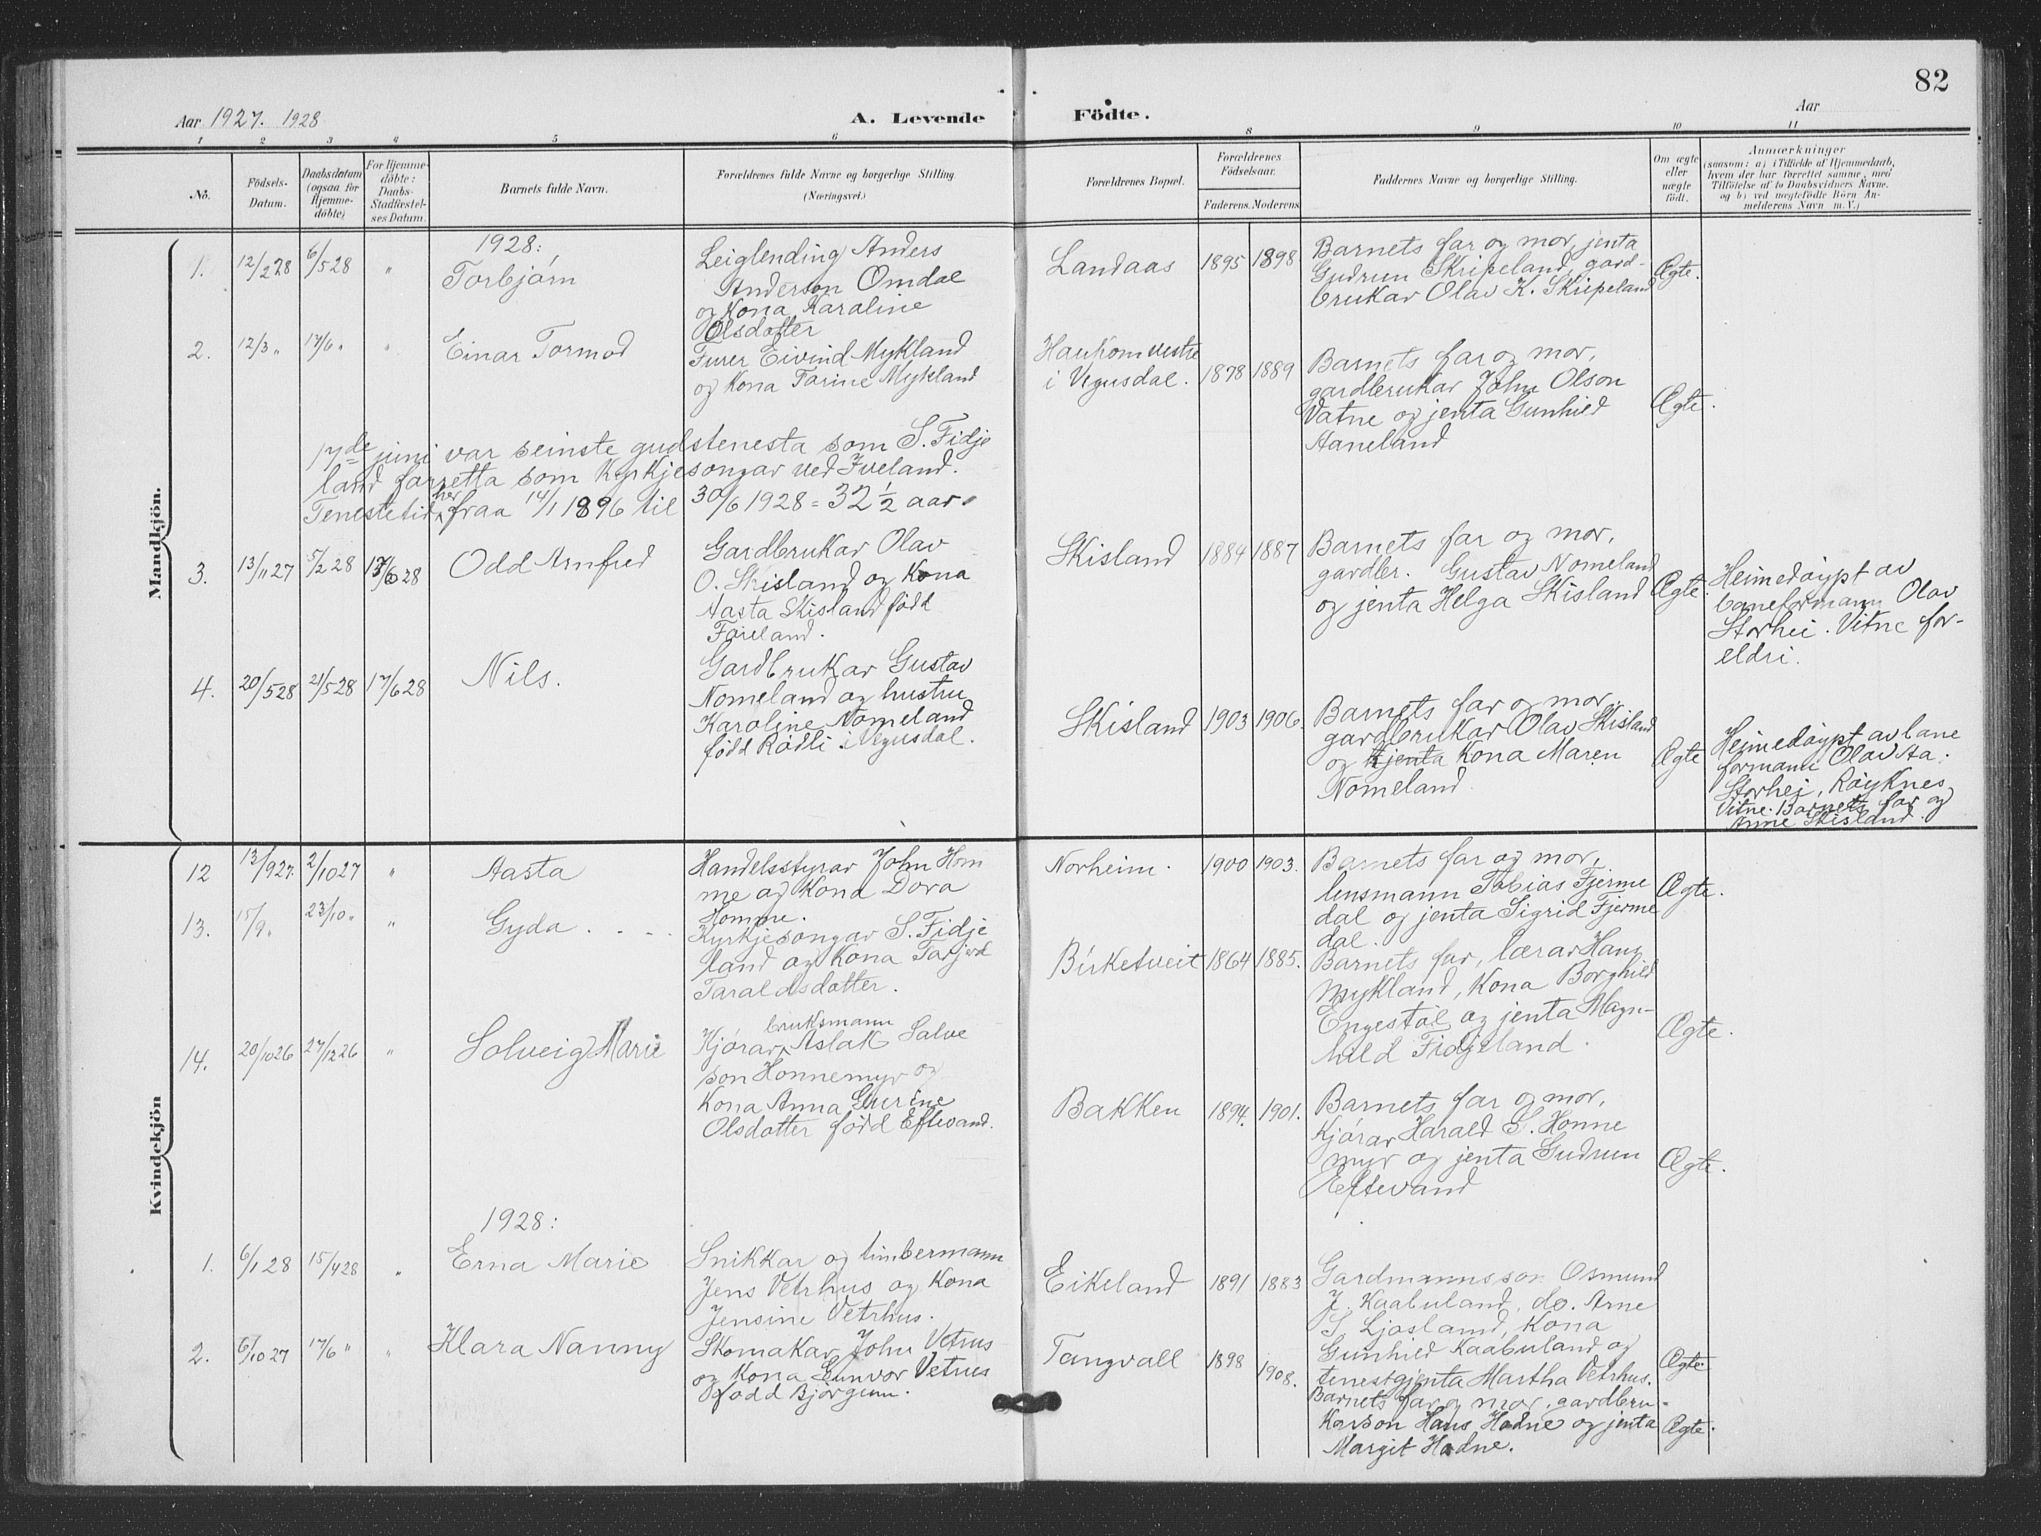 82
Aar 1927. 1928
A. Levende
Födte.
Aar
1 2 3 4 5 6 8 9 10 11
No.
Födsels-
Datum.
Daabsdatum
(ogsaa for
Hjemme-
döbte)
For Hjemme-
döbte:
Daabs-
Stadfæstel-
ses Datum.
Barnets fulde Navn.
Forældrenes fulde Navne og borgerlige Stilling
(Næringsvei.)
Forældrenes Bopæl.
Forældrenes
Födselsaar.
Faderens. Moderens.
Faddernes Navne og borgerlige Stilling.
Om ægte
eller
uægte
födt.
Anmærkninger
(saasom: a) i Tilfælde af Hjemmedaab,
hvem der har forrettet samme, med
Tilföielse af to Daabsvidners Navne.
og b) ved uægtefödte Börn An-
melderens Navn m. V.)
Mandkjön.
1928:
1. 12/2 28 6/5 28 " Torbjørn
Leiglending Anders
Anderson Omdal
og Kona Karoline
Olsdotter
Landaas 1895 1898
Barnets far og mor, jenta
Gudrun Skripeland, gard-
brukar Olav K. Skripeland
Ægte.
2. 12/3 " 17/6 " " Einar Tormod
Furer Eivind Mykland
og Kona Tarine Mykland
Haukom vestre
i Vegusdal. 1878 1889
Barnets far og mor,
gardbrukar John Olson
Vatne og jenta Gunhild
Aaneland
Ægte.
17de juni var seinste gudstenesta som S. Fidje
land forretta som Kyrkjesongar ved Iveland.
Tenestetid her fraa 14/1 1896 til 30/6 1928 = 32 1/2 aar.
3. 13/11 27 5/2 28 17/6 28 Odd Arnfred
Gardbrukar Olav
O. Skisland og Kona
Aasta Skisland född
Føreland.
Skisland 1884 1887
Barnets far og mor,
gardbr. Gustav Nomeland
og jenta Helga Skisland
Ægte.
Heimedøypt av
baneformann Olav
Storhei. Vitne for-
eldri.
4. 20/5 28 21/5 28 17/6 28 Nils.
Gardbrukar Gustav
Nomeland og hustru
Karoline Nomeland
född Rødli i Vegusdal.
Skisland 1903 1906.
Barnets far og mor,
gardbrukar Olav Skisland
og jenta Kona Maren
Nomeland.
Ægte
Heimedøypt av bane
formann Olav Aa.
Storhei, Røyknes
Vitne. Barnets far og
Anne Skisland.
Kvindekjön
12 13/9 27. 2/10 27 " Aasta
Handelsstyrar John Hom
me og Kona Dora
Homme.
Norheim. 1900 1903.
Barnets far og mor,
lensmann Tobias Fjerme
dal og jenta Sigrid Fjerme
dal.
Ægte.
13. 15/9 " 23/10 " " Gyda
Kyrkjesongar S. Fidje
land og Kona Tarjerd
Taraldsdotter.
Birketveit 1864 1885.
Barnets far, lærar Hans
Mykland, Kona Borghild
Engestøl og jenta Magn-
hild Fidjeland.
Ægte.
14. 20/10 26 27/12 26 " Solveig Marie
bruksmann
Kjørar Aslak Salve
son Honnemyr og
Kona Anna Gurine
Olsdotter född Eftevand.
Bakken 1894. 1901.
Barnets far og mor,
Kjørar Harald S. Honne
myr og jenta Gudrun
Eftevand
Ægte.
1928:
1. 6/1 28 15/4 28 " Erna Marie
Snikkar og timbermann
Jens Vetrhus og Kona
Jensine Vetrhus.
Eikeland 1891 1883
Gardmannsson Osmund
J. Kaabuland, do. Arne
S. Ljosland, Kona
Gunhild Kaabuland og
tenestgjenta Martha Vetrhus.
Ægte.
2. 6/10 27 17/6 " " Klara Nanny
Skomakar John Vetrus
og Kona Gunvor Vetrus
född Bjørgum.
Tangvall 1898 1908.
Barnets far og mor, gardbru-
karson Hans Hodne og jenta
Margit Hodne.
Ægte.